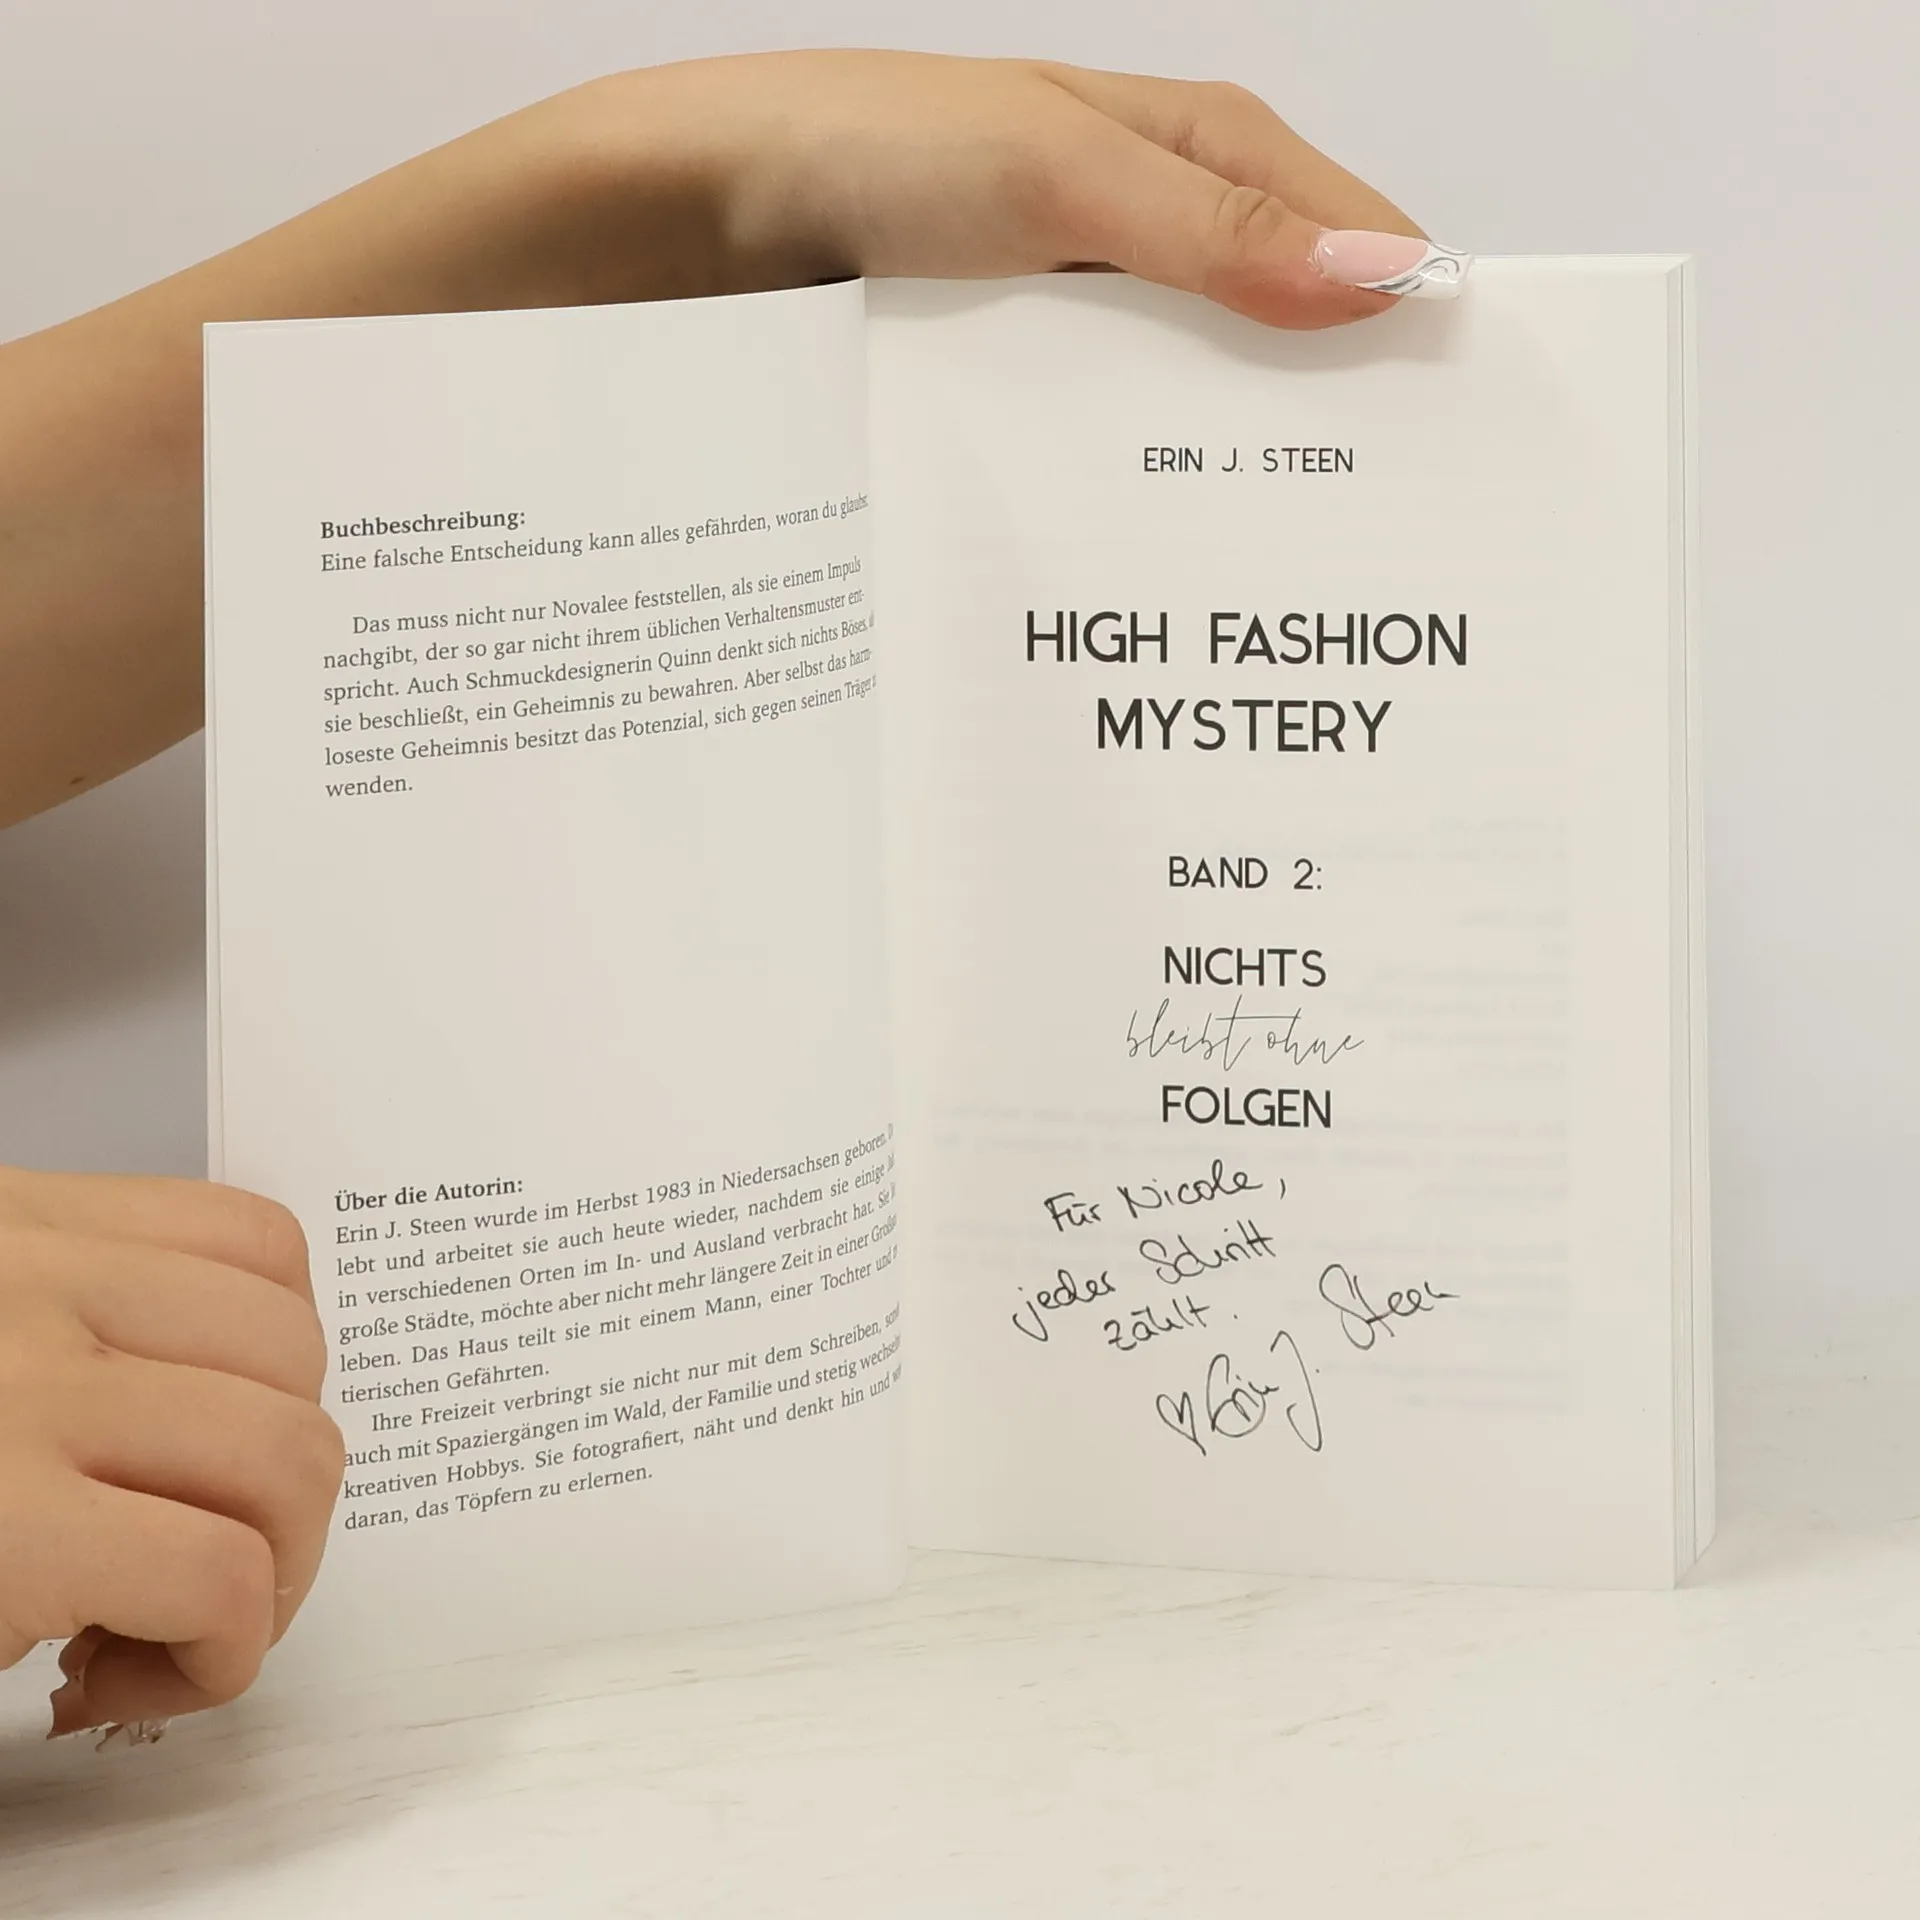 Buchbeschreibung:
Eine falsche Entscheidung kann alles gefährden, woran du glaubst
Das muss nicht nur Novalee feststellen, als sie einem Impuls
nachgibt, der so gar nicht ihrem üblichen Verhaltensmuster ent-
spricht. Auch Schmuckdesignerin Quinn denkt sich nichts Böses,
sie beschließt, ein Geheimnis zu bewahren. Aber selbst das harm-
loseste Geheimnis besitzt das Potenzial, sich gegen seinen Träger
wenden.
Über die Autorin:
Erin J. Steen wurde im Herbst 1983 in Niedersachsen geboren.
lebt und arbeitet sie auch heute wieder, nachdem sie einige
in verschiedenen Orten im In- und Ausland verbracht hat. Sie
große Städte, möchte aber nicht mehr längere Zeit in einer
leben. Das Haus teilt sie mit einem Mann, einer Tochter und
tierischen Gefährten.
Ihre Freizeit verbringt sie nicht nur mit dem Schreiben,
auch mit Spaziergängen im Wald, der Familie und stetig
kreativen Hobbys. Sie fotografiert, näht und denkt hin und
daran, das Töpfern zu erlernen.
ERIN J. STEEN
HIGH FASHION
MYSTERY
BAND 2:
NICHTS
bleibt ohne
FOLGEN
Für Nicole,
jeder Schritt
zählt.
♡ Erin J. Steen